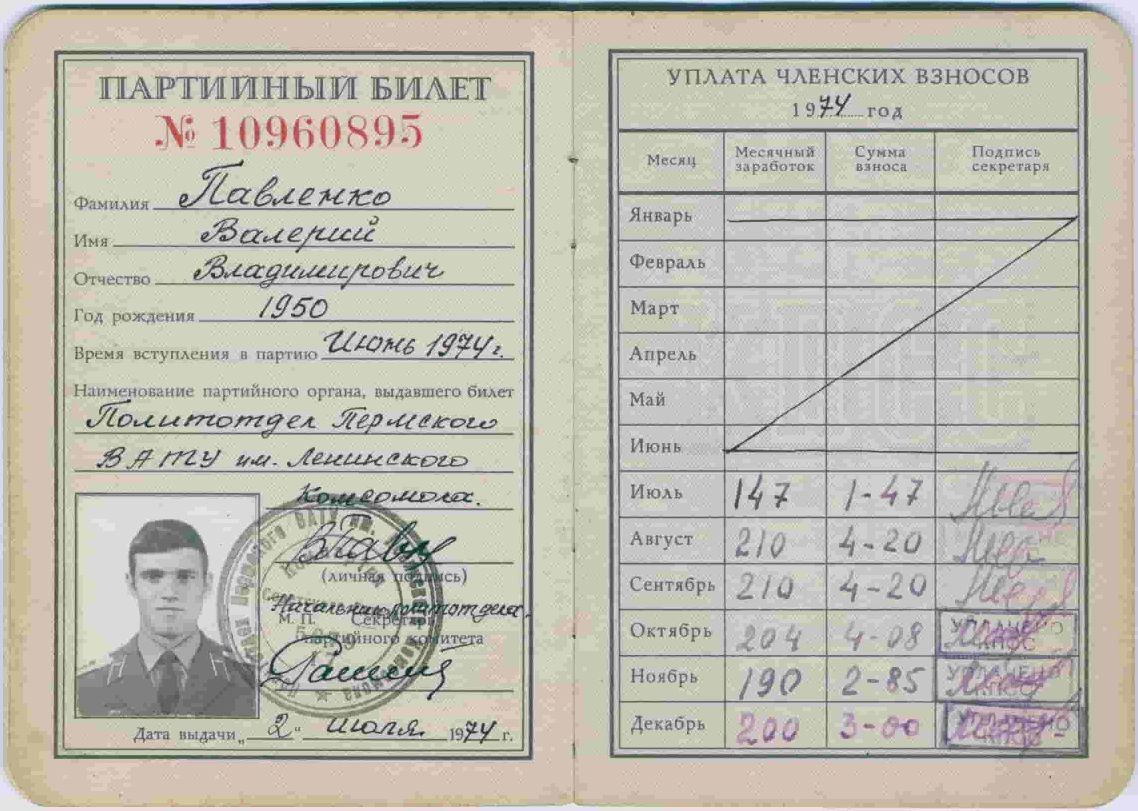 ПАРТИЙНЫЙ БИЛЕТ
№ 10960895
Фамилия Павленко
Имя Валерий
Отчество Владимирович
Год рождения 1950
Время вступления в партию Июнь 1974 г.
Наименование партийного органа, выдавшего билет
Политотдел Пермского
ВАТУ им. Ленинского
Комсомола.
(личная подпись)
Начальник политотдела
М. П. Секретарь
партийного комитета
Дата выдачи „2“ июля 1974 г.
УПЛАТА ЧЛЕНСКИХ ВЗНОСОВ
1974 год
Месяц Месячный заработок Сумма взноса Подпись секретаря
Январь
Февраль
Март
Апрель
Май
Июнь
Июль 147 1-47
Август 210 4-20
Сентябрь 210 4-20
Октябрь 204 4-08 УПЛАЧЕНО ВЗНОС
Ноябрь 190 2-85 УПЛАЧЕНО ВЗНОС
Декабрь 200 3-00 УПЛАЧЕНО ВЗНОС